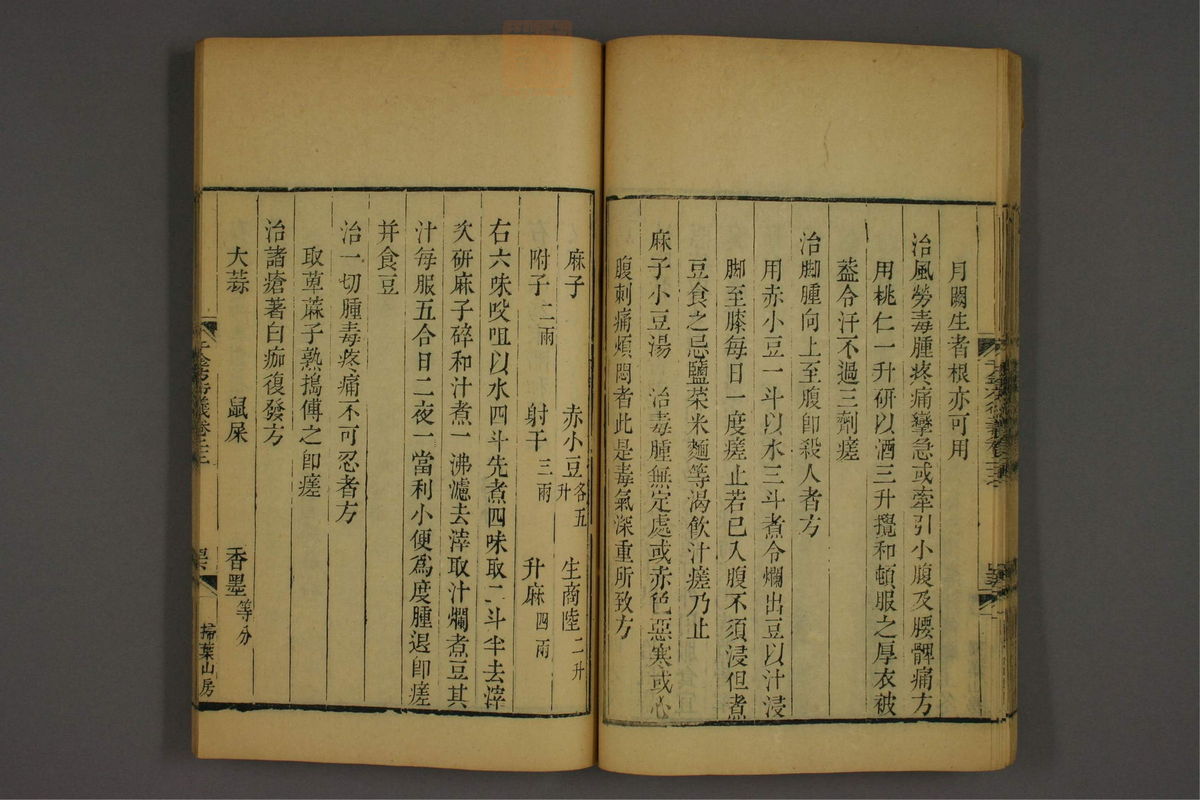 月闕生者根亦可用
治風勞毒腫疼痛攣急或牽引小腹及腰髀痛方
用桃仁一升研以酒三升攪和頓服之厚衣被
蓋令汗不過三劑瘥
治脚腫向上至腹卽殺人者方
用赤小豆一斗以水三斗煮令爛出豆以汁浸
脚至膝每日一度瘥止若已入腹不須浸但煮
豆食之忌鹽菜米麵等渴飲汁瘥乃止
麻子小豆湯 治毒腫無定處或赤色惡寒或心
腹刺痛煩悶者此是毒氣深重所致方
麻子 赤小豆各五升 生商陸二升
附子二兩 射干三兩 升麻四兩
右六味㕮咀以水四斗先煮四味取二斗半去滓
次研麻子碎和汁煮一沸濾去滓取汁爛煮豆其
汁每服五合日二夜一當利小便爲度腫退卽瘥
幷食豆
治一切腫毒疼痛不可忍者方
取萆麻子熟搗傅之卽瘥
治諸瘡著白痂復發方
大蒜 鼠屎 香墨等分
掃葉山房